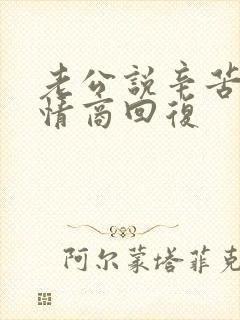 老公說辛苦
情商回復
阿尔蒙塔菲克